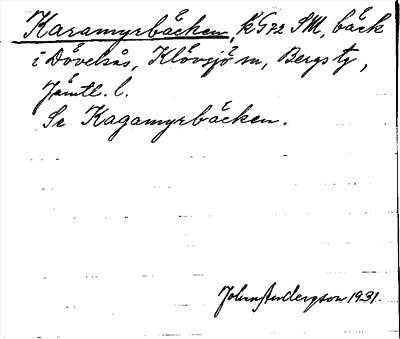 Karamyrbäcken, k G72 SM, bäck
i Dövelsås, Klövsjö sn, Bergs tg,
Jämtl. l.
Se Kagamyrbäcken.
John Andersson 1931.